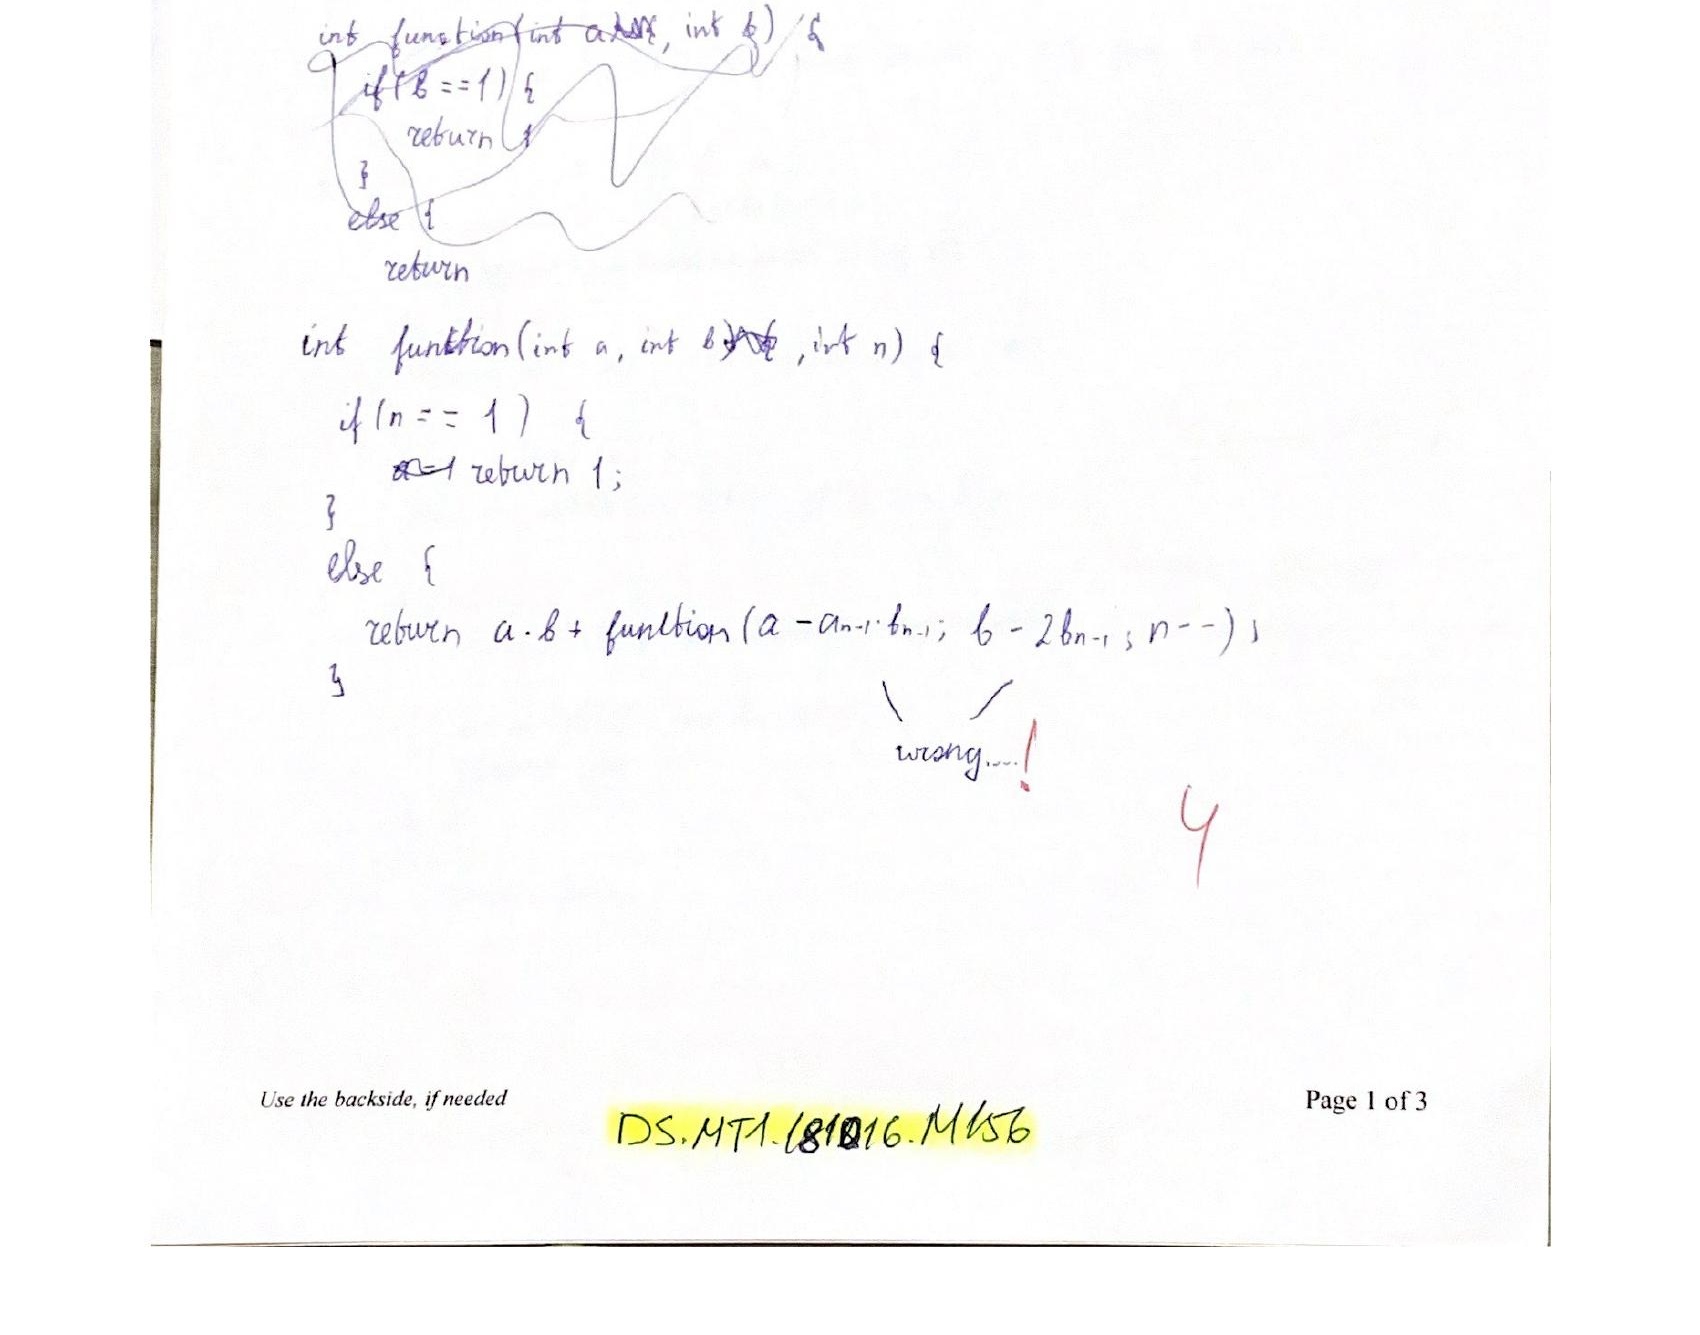 int function(int a, int b) {
if(b==1) {
return
}
else {
return
int function(int a, int b, int n) {
if(n == 1) {
a=1 return 1;
}
else {
return a·b + function(a - aₙ₋₁·bₙ₋₁; b - 2bₙ₋₁; n--);
}
wrong....!
4
Use the backside, if needed
Page 1 of 3
DS.MT1.181016.M156